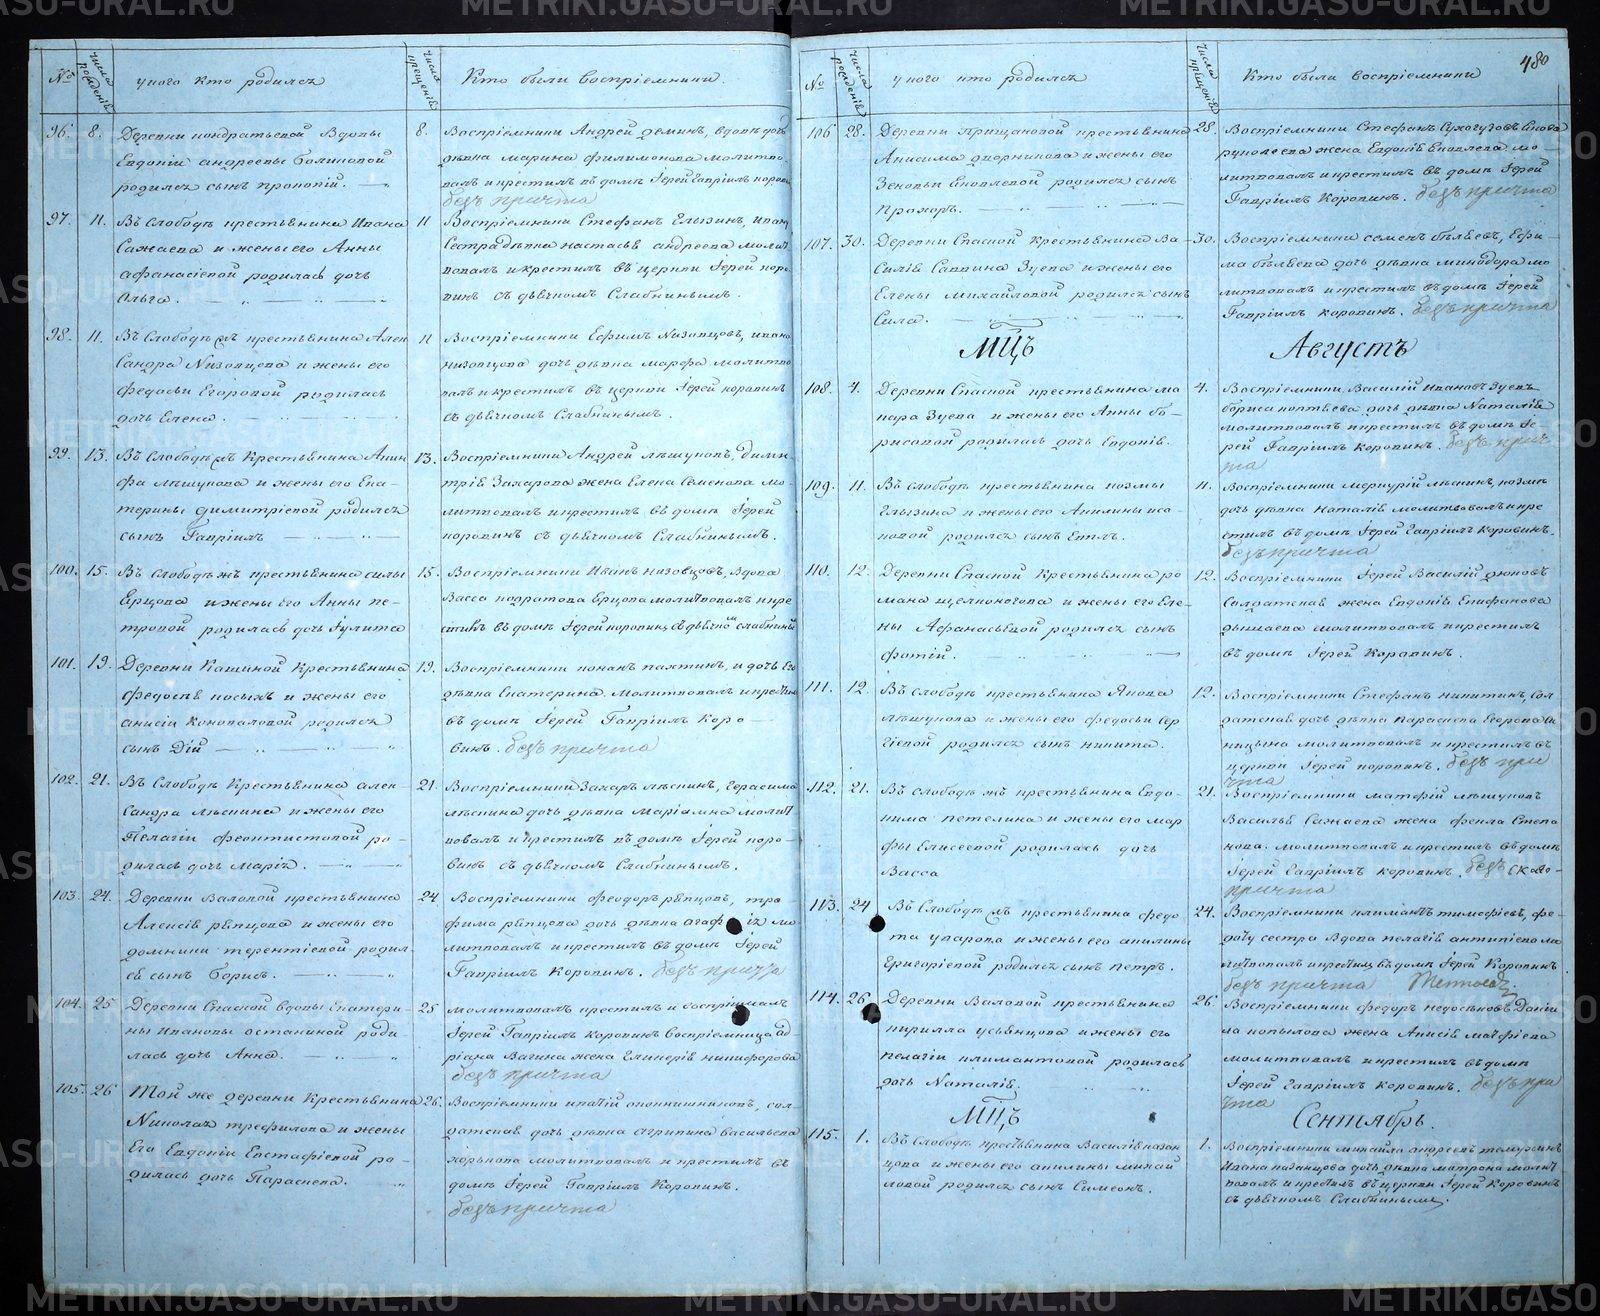 №
числа рожденій
у кого кто родился
числа крещеній
Кто были воспріемники.
96. 8. Деревни Кондратьевой вдовы
Евдокіи Андреевы
родился сынъ Прокопій.
8. Воспріемники Андрей Деминъ, вдовы дочь
дѣвка Марина Филимонова молитво-
валъ и крестилъ въ домѣ Іерей Гавріилъ Корови
безъ причта
97. 11. Въ Слободѣ крестьянина Ивана
Сажаева и жены его Анны
Афанасіевой родилась дочь
Ольга.
11 Воспріемники Стефанъ Елызинъ, Иван
Сестра дѣвка Настасья Андреева молит
вовалъ и крестилъ въ церкви Іерей Коро-
винъ съ дьячкомъ Слабнинымъ.
98. 11. Въ Слободѣ крестьянина Алек
сандра Низовцева и жены его
Федосьи Егоровой родилась
дочь Елена.
11 Воспріемники Ефимъ Низовцовъ, Ивана
Низовцова дочь дѣвка Марфа молитво
валъ и крестилъ въ церкви Іерей Коровинъ
съ дьячкомъ Слабнинымъ.
99. 13. Въ Слободѣ крестьянина Акин
фа Лѣшукова и жены его Ека-
терины Димитріевой родился
сынъ Гавріилъ
13. Воспріемники Андрей Лѣшуковъ, Дими
трія Захарова жена Елена Семенова мо-
литвовалъ и крестилъ въ домѣ Іерей
Коровинъ съ дьячкомъ Слабнинымъ.
100. 15. Въ Слободѣ жъ крестьянина Силы
Ерцова и жены его Анны Пе-
тровой родилась дочь Іулита
15. Воспріемники Иванъ Низовцовъ, вдова
Васса Ерцова молитвовалъ и кре
стилъ въ домѣ Іерей Коровинъ съ дьячкомъ Слабнины
101. 19. Деревни Кашиной крестьянина
Федосѣя и жены его
Анисіи Коноваловой родился
сынъ Дій
19. Воспріемники Конанъ Пахтинъ, и дочь Его
дѣвка Екатерина. Молитвовалъ и крестил
въ домѣ Іерей Гавріилъ Коро
винъ. безъ причта
102. 21. Въ Слободѣ крестьянина Алек-
сандра Лѣснина и жены его
Пелагіи Феоктистовой ро-
дилась дочь Марія.
21. Воспріемники Захаръ Лѣснинъ, Герасима
Лѣснина дочь дѣвка Маріамна молит
вовалъ и крестилъ въ домѣ Іерей Коро-
винъ съ дьячкомъ Слабнинымъ.
103. 24. Деревни Валовой крестьянина
Алексія Рѣпцова и жены его
Домники Терентіевой родил
ся сынъ Борис.
24 Воспріемники Феодоръ Рѣпцовъ, Тро
фима Рѣпцова дочь дѣвка Агаф ія мо
литвовалъ и крестилъ въ домѣ Іерей
Гавріилъ Коровинъ. безъ причта
104. 25 Деревни Спасной вдовы Екатери-
ны Ивановы Останиной роди
лась дочь Анна.
25 Молитвовалъ крестилъ и воспріималъ
Іерей Гавріилъ Коровинъ Воспріемница Ад
ріана Вагина жена Гликерія Никифорова
безъ причта
105. 26 Той же деревни Крестьянина
Николая Трефилова и жены
Его Евдокіи Евстафіевой ро-
дилась дочь Параскева.
26. Воспріемники Ипатій Оконнишниковъ, сол-
датская дочь дѣвка Агрипина Васильева
Хорькова молитвовалъ и крестилъ въ
домѣ Іерей Гавріилъ Коровинъ.
безъ причта
480
№
числа рожденій
у кого кто родился
числа крещеній
Кто были воспріемники
106 28. Деревни Прищановой крестьянина
Анисима Дворникова и жены его
Зеновьи Яковлевой родился сынъ
Прохоръ.
28. Воспріемники Стефанъ Сухогузовъ Якова
жена Евдокія Яковлева мо-
литвовалъ и крестилъ въ домѣ Іерей
Гавріилъ Коровинъ. безъ причта
107. 30. Деревни Спасной крестьянина Ва-
силія Саввина Зуева и жены его
Елены Михайловой родился сынъ
Сила.
30. Воспріемники Семенъ Бѣляевъ, Ефи-
ма Бѣляева дочь дѣвка Минодора мо
литвовалъ и крестилъ въ домѣ Іерей
Гавріилъ Коровинъ. безъ причта
МЦЪ Августъ
108. 4. Деревни Спасной крестьянина Ма
кара Зуева и жены его Анны Бо-
рисовой родилась дочь Евдокія.
4. Воспріемники Василій Ивановъ Зуевъ
Бориса Коптѣева дочь дѣвка Наталія
молитвовалъ и крестилъ въ домѣ Іе-
рей Гавріилъ Коровинъ. безъ прич
та
109. 11. Въ Слободѣ крестьянина Козмы
Елызина и жены его Акилины Иса-
ковой родился сынъ Евплъ.
11. Воспріемники Меркурій Лѣснинъ, Козмы
дочь дѣвка Наталія молитвовалъ и кре
стилъ въ домѣ Іерей Гавріилъ Коровинъ.
безъ причта
110. 12. Деревни Спасной Крестьянина Ро
мана Щелконогова и жены его Еле-
ны Афанасьевой родился сынъ
Фотій.
12. Воспріемники Іерей Василій
Солдатская жена Евдокія Епифанова
молитвовалъ и крестилъ
въ домѣ Іерей Коровинъ.
111. 12. Въ слободѣ крестьянина Якова
Лѣшукова и жены его Федосьи Сер
гіевой родился сынъ Никита.
12. Воспріемники Стефанъ Никитинъ, Сол
датская дочь дѣвка Параскева Егорова Си
ницына молитвовалъ и крестилъ въ
церкви Іерей Коровинъ. безъ при
чта
112. 21. Въ слободѣ жъ крестьянина Евдо-
кима Петелина и жены его Мар
фы Елисеевой родилась дочь
Васса
21. Воспріемники Матфій Лѣшуковъ
Василья Сажаева жена Фекла Степа
нова. молитвовалъ и крестилъ въ домѣ
Іерей Гавріилъ Коровинъ. безъ
причта
113. 24 Въ Слободѣ крестьянина Федо
та Уварова и жены его Акилины
Григоріевой родился сынъ Петръ.
24. Воспріемники Климантъ Тимофіевъ, Фе-
доту сестра вдова Пелагія Антипіева мо
литвовалъ и крестилъ въ домѣ Іерей Коровинъ.
безъ причта
114. 26 Деревни Валовой крестьянина
Кирилла Усьянцова и жены его
Пелагіи Климантовой родилась
дочь Наталія.
26. Воспріемники Федоръ Недосѣковъ Дани
ла Копылова жена Анисія Матфіева
молитвовалъ и крестилъ въ домѣ
Іерей Гавріилъ Коровинъ. безъ при
чта
МЦЪ Сентябрь.
115. 1. Въ Слободѣ крестьянина Василія Казан
цова и жены его Акилины Михай
ловой родился сынъ Симеонъ.
1. Воспріемники Михайла Андреевъ
Ивана Казанцова дочь дѣвка Матрона молит
вовалъ и крестилъ въ церкви Іерей Коровинъ
съ дьячкомъ Слабнинымъ.
METRIKI.GASO-URAL.RU